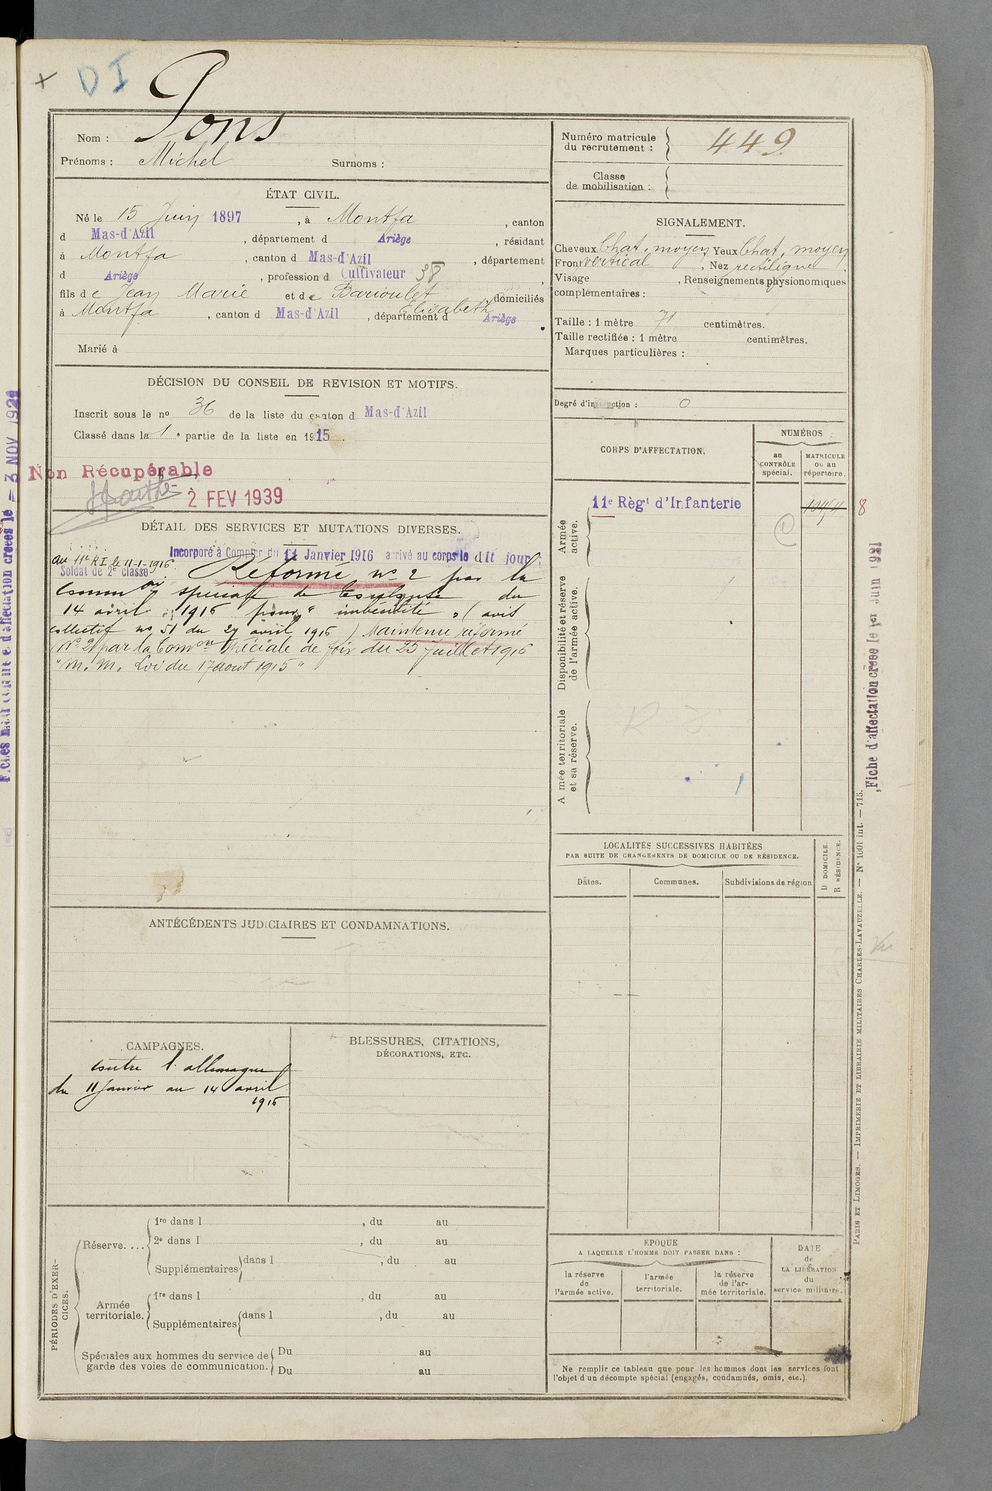 + D I
Pons
Nom :
Prénoms : Michel Surnoms :
Numéro matricule du recrutement : 449
Classe de mobilisation :
ÉTAT CIVIL.
Né le 15 Juin 1897, à Montfa, canton
d Mas-d'Azil, département d Ariège, résidant
à Montfa, canton d Mas-d'Azil, département
d Ariège, profession d Cultivateur 38,
fils de Jean Marie et de Barioulet Elisabeth, domiciliés
à Montfa, canton d Mas-d'Azil, département d Ariège
Marié à
SIGNALEMENT.
Cheveux Chat. moyen Yeux Chat. moyen
Front vertical, Nez rectiligne
Visage , Renseignements physionomiques
complémentaires :
Taille : 1 mètre 71 centimètres.
Taille rectifiée : 1 mètre centimètres.
Marques particulières :
Degré d'instruction : 0
DÉCISION DU CONSEIL DE REVISION ET MOTIFS.
Inscrit sous le n° 36 de la liste du canton d Mas-d'Azil
Classé dans la 1e partie de la liste en 1915.
Non Récupérable
2 FEV 1939
DÉTAIL DES SERVICES ET MUTATIONS DIVERSES.
Incorporé à Compter du 11 Janvier 1916 arrivé au corps le dit jour
au 11e R.I. le 11-1-1916
Soldat de 2e classe
Réformé n° 2 par la
Common spéciale de du
14 avril 1916 pour " imbécilité " (avis
collectif n° 51 du 29 avril 1916) Maintenu réformé
N° 2 par la Comon spéciale de Foix du 25 juillet 1916
"M. M. Loi du 17 aout 1915"
CORPS D'AFFECTATION.
NUMÉROS
au CONTRÔLE spécial.
MATRICULE ou au répertoire.
Armée active.
11e Règt d'Infanterie
8
Disponibilité et réserve de l'armée active.
Armée territoriale et sa réserve.
ANTÉCÉDENTS JUDICIAIRES ET CONDAMNATIONS.
CAMPAGNES.
contre l'allemagne
du 11 Janvier au 14 avril
1916
BLESSURES, CITATIONS,
DÉCORATIONS, ETC.
LOCALITÉS SUCCESSIVES HABITÉES
PAR SUITE DE CHANGEMENTS DE DOMICILE OU DE RÉSIDENCE.
Dates. Communes. Subdivisions de région
D DOMICILE.
R RÉSIDENCE.
PÉRIODES D'EXERCICES.
Réserve....
1re dans l , du au
2e dans l , du au
Supplémentaires dans l , du au
Armée territoriale.
1re dans l , du au
Supplémentaires dans l , du au
Spéciales aux hommes du service de garde des voies de communication.
Du au
Du au
ÉPOQUE
A LAQUELLE L'HOMME DOIT PASSER DANS :
la réserve de l'armée active.
l'armée territoriale.
la réserve de l'armée territoriale.
DATE de LA LIBÉRATION du service militaire.
Ne remplir ce tableau que pour les hommes dont les services font
l'objet d'un décompte spécial (engagés, condamnés, omis, etc.).
Fiche d'affectation créée le 1er Juin 1921
d'affectation créées le - 3 NOV 1921
PARIS ET LIMOGES. — IMPRIMERIE ET LIBRAIRIE MILITAIRES CHARLES-LAVAUZELLE. — N° 1601 int. — 715.
Vu